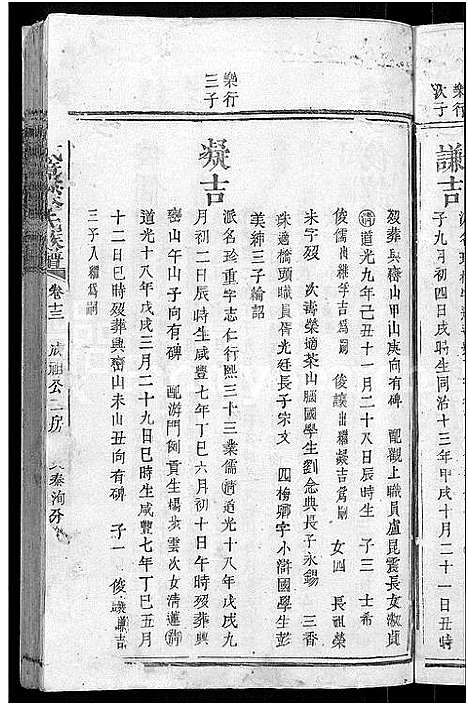 樂行
次子
謙吉
子九月初四日戌時生同治十三年甲戌十月二十一日丑時
歿葬與窰山甲山庚向有碑 配觀上職員盧昆震長女淑貞
清道光九年己丑十一月二十八日辰時生 子三 士希
俊儒出繼孚吉爲嗣 俊讓出繼凝吉爲嗣 女四 長祖榮
朱字歿 次壽榮適茶山腦國學生劉念典長子永錫 三香
珠適橋頭職員胥光廷長子宗文 四榜卿字小滸國學生彭
美紳三子綸詔
樂行
三子
凝吉
派名珍重字志二行熙三十三業儒清道光十八年戊戌九
月初二日辰時生咸豐七年丁巳六月初十日午時歿葬與
窰山午山子向有碑 配游門街貢生楊步雲次女清蓮清
道光十八年戊戌三月二十九日巳時生咸豐七年丁巳五月
十二日巳時歿葬與窰山未山丑向有碑 子一 俊讓謙吉
三子入繼爲嗣
族譜
卷十三
二房
泰洵分